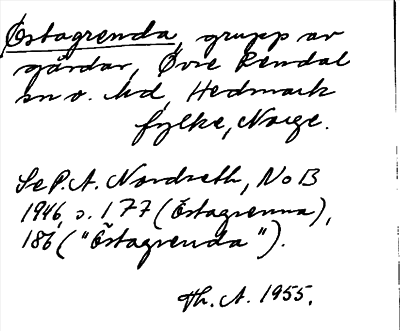 Östagrenda, grupp av
gårdar, Øvre Rendal
sn o. hd, Hedmark
fylke, Norge.
Se P. A. Nordseth, NoB
1946, s. 177 (Östagrenna),
186 ("Östagrenda").
Th. A. 1955.